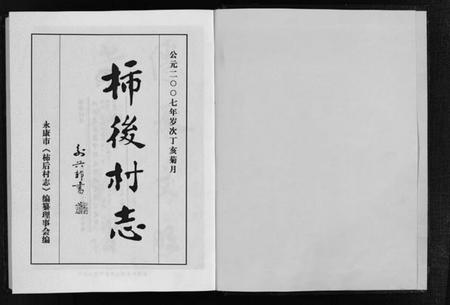 公元二〇〇七年岁次丁亥菊月
柿後村志
永康市《柿后村志》编纂理事会编